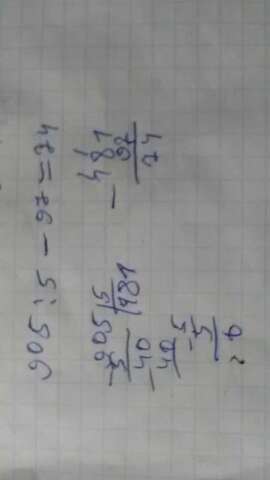 905 : 5 − 97 = 74
− 905 | 5
5 | 181
− 40
40
− 5
5
0
− 181
97
74